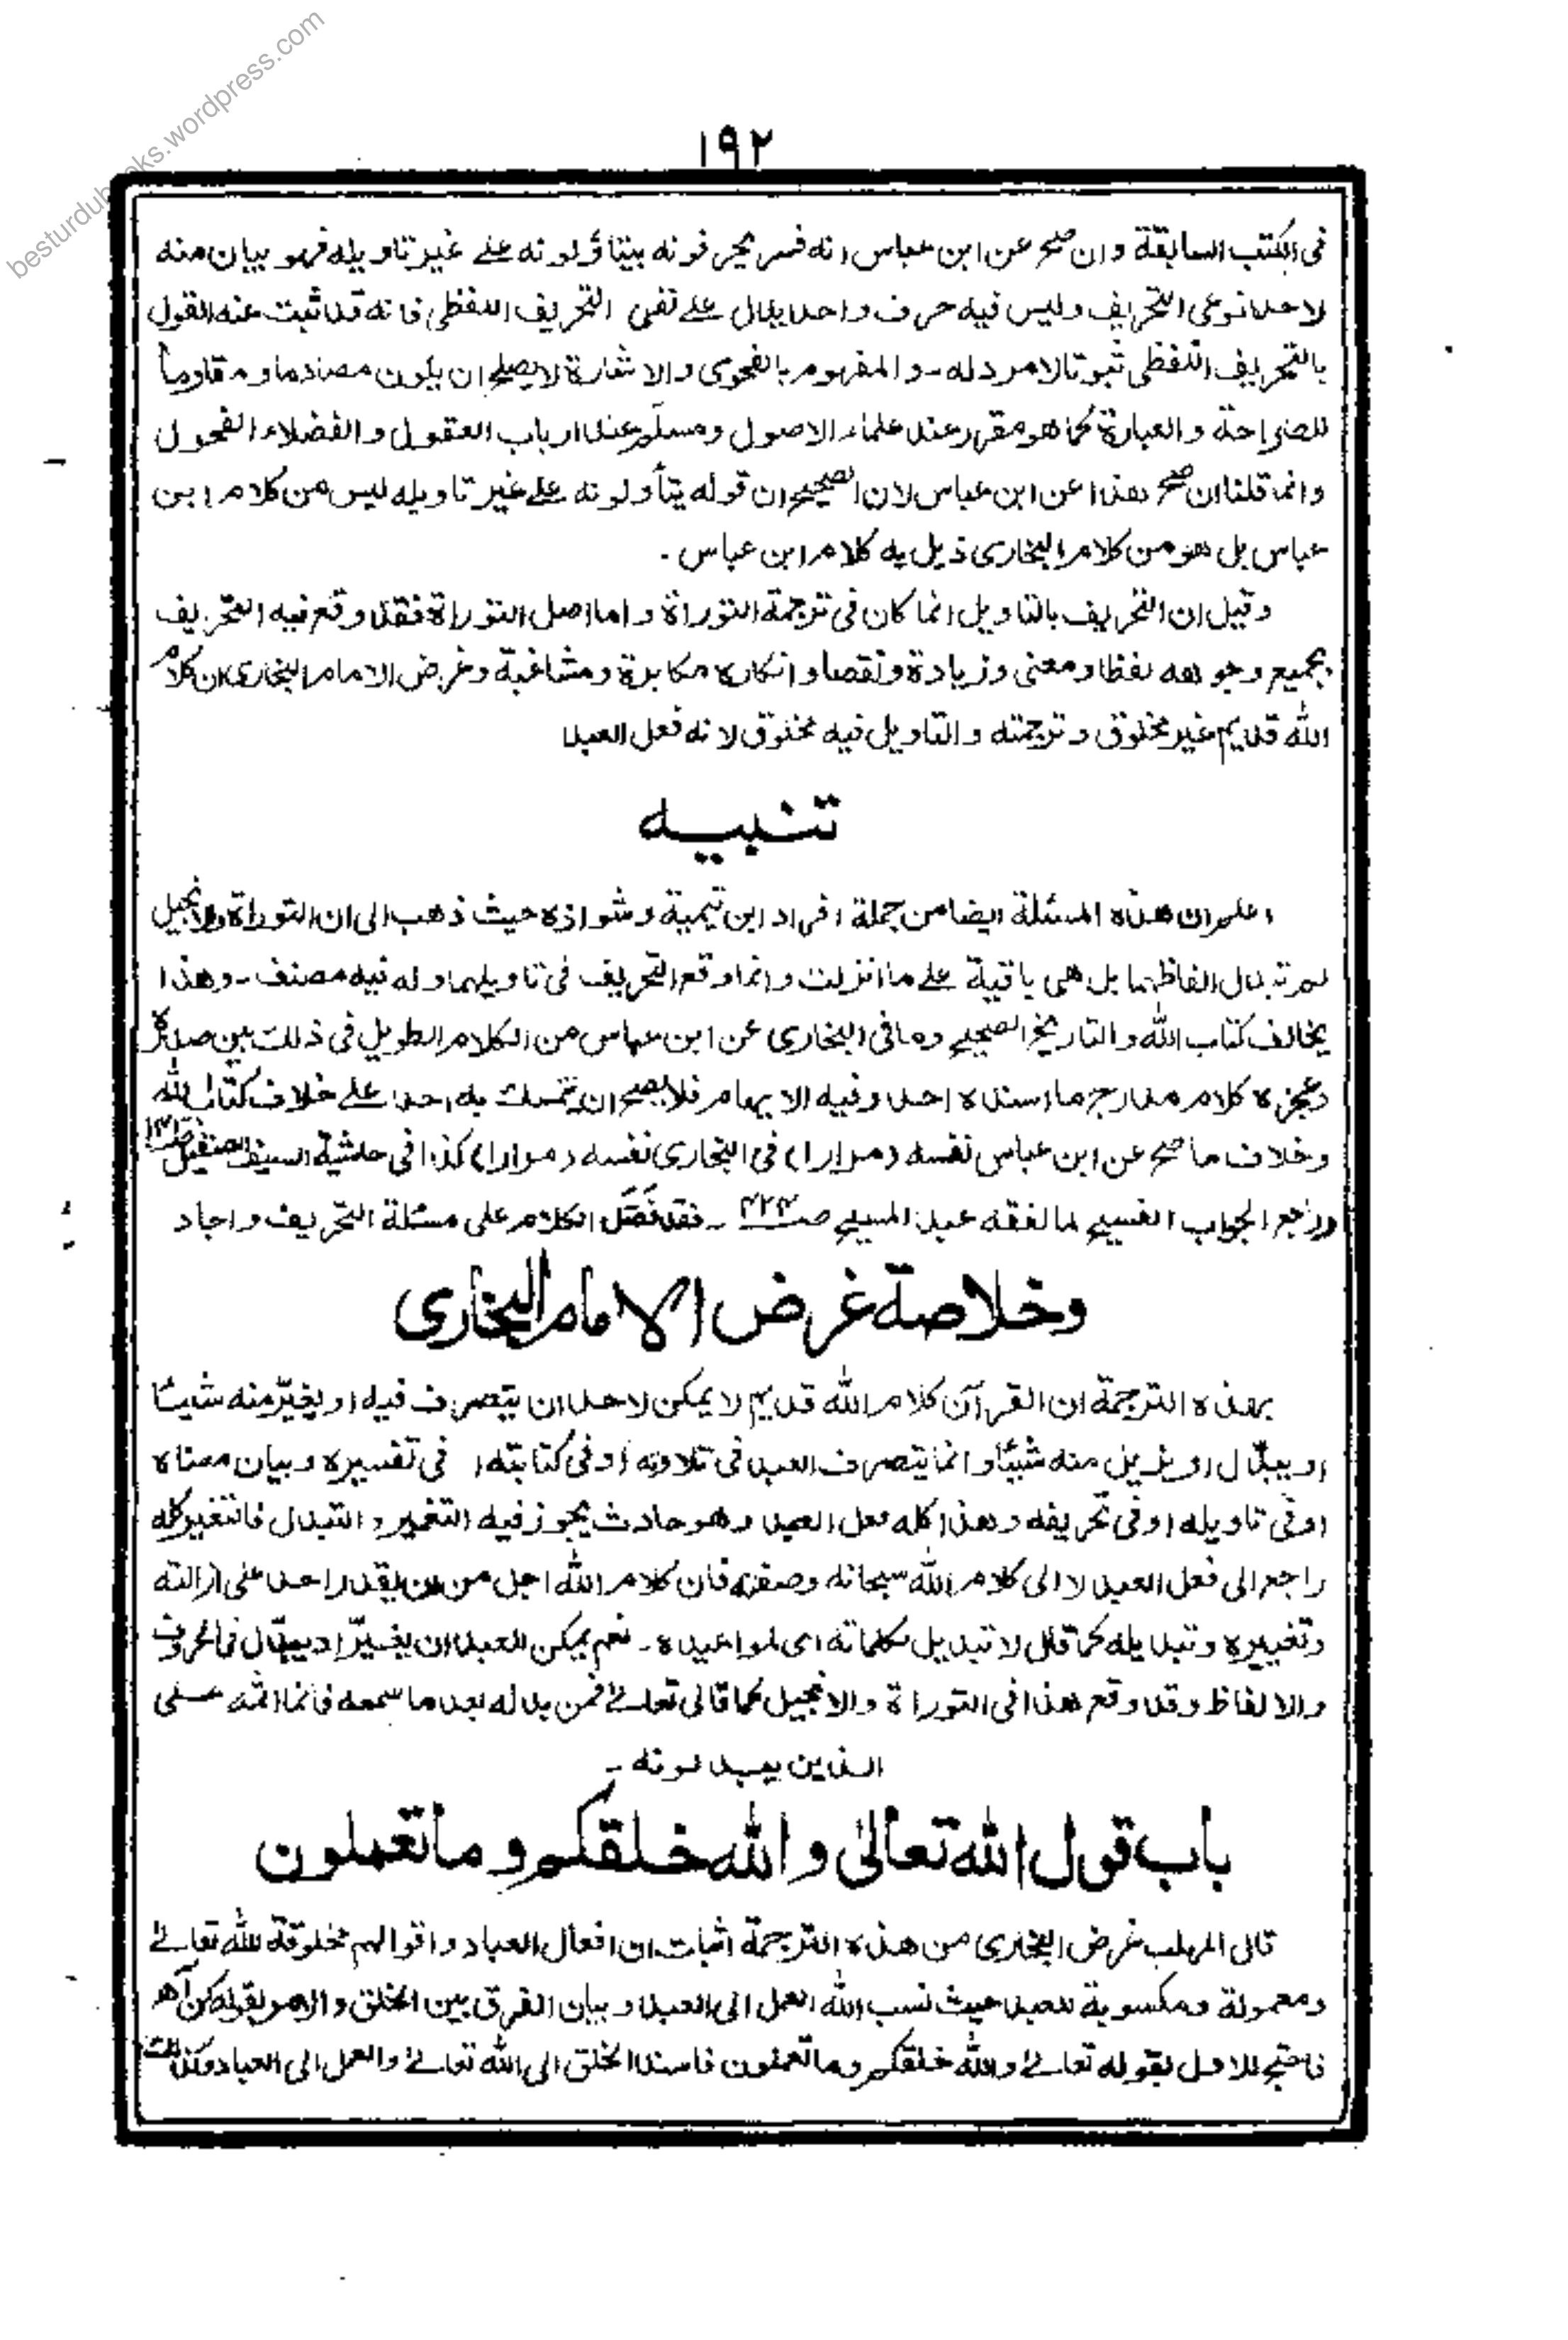 besturdubooks.wordpress.com
١٩٢
فى الكتب السابقة وان صح عن ابن عباس انه فسر يحرفونه بيتاؤلونه علے غير تاويله فهو بيان منه
لاحد نوعى التحريف وليس فيه حرف واحد يدل علے نفى التحريف اللفظى فانه قد ثبت عنه القول
بالتحريف اللفظى ثبوتا لا مرد له ـ والمفهوم بالفحوى والاشارة لا يصلح ان يكون مصادما ومقاوماً
للصراحة والعبارة كما هو مقرر عند علماء الاصول ومسلّم عند ارباب العقول والفضلاء الفحول
وانما قلنا ان صح هذا عن ابن عباس لان الصحيح ان قوله يتأولونه علے غير تاويله ليس من كلام ابن
عباس بل هو من كلام البخارى ذيل به كلام ابن عباس ۔
وقيل ان التحريف بالتاويل انما كان فى ترجمة التوراة واما اصل التوراة فقد وقع فيه التحريف
بجميع وجوهه لفظا ومعنى وزيادة ونقصا وانكاره مكابرة ومشاغبة وغرض الامام البخارى ان كلام
الله قديم غير مخلوق وترجمته والتاويل فيه مخلوق لانه فعل العبد
تنبيه
اعلم ان هذه المسئلة ايضا من جملة افراد ابن تيمية وشواذه حيث ذهب الى ان التوراة والانجيل
لم تبدل الفاظهما بل هى باقية علے ما انزلت وانما وقع التحريف فى تاويلهما وله فيه مصنف ـ وهذا
يخالف كتاب الله والتاريخ الصحيح وما فى البخارى عن ابن عباس من الكلام الطويل فى ذلك بين صدره
وعجزه كلام مدرج ما اسنده احد وفيه الايهام فلا يصح ان يتمسك به احد علے خلاف كتاب الله
وخلاف ما صح عن ابن عباس نفسه (مرارا) فى البخارى نفسه (مرارا) كذا فى حاشية السيف الصقيل
وراجع الجواب الفسيح لما لفقه عبد المسيح ـ فقد فَصَّل الكلام على مسئلة التحريف واجاد
وخلاصة غرض الامام البخارى
بهذه الترجمة ان القرآن كلام الله قديم لا يمكن لاحد ان يتصرف فيه او يغيّر منه شيئا
او يبدّل او يزيل منه شيئا وانما يتصرف العبد فى تلاوته او فى كتابته او فى تفسيره وبيان معناه
او فى تاويله او فى تحريفه وهذا كله فعل العبد وهو حادث يجوز فيه التغير والتبدل فالتغير كله
راجع الى فعل العبد لا الى كلام الله سبحانه وصفته فان كلام الله اجل من ان يقدر احد على ازالته
وتغييره وتبديله كما قال لا تبديل لكلماته اى لمواعيده ـ نعم يمكن للعبد ان يغيّر او يبدّل فى الحروف
والالفاظ وقد وقع هذا فى التوراة والانجيل كما قال تعالےٰ فمن بدله بعد ما سمعه فانما اثمه على
الذين يبدلونه ـ
باب قول الله تعالىٰ والله خلقكم وما تعملون
قال المهلب غرض البخارى من هذه الترجمة اثبات ان افعال العباد واقوالهم مخلوقة لله تعالےٰ
ومعمولة ومكسوبة للعبد حيث نسب الله العمل الى العبد وبيان الفرق بين الخلق والامر بقوله
فاحتج للاول بقوله تعالےٰ والله خلقكم وما تعملون فاسند الخلق الى الله تعالےٰ والعمل الى العباد وكذلك